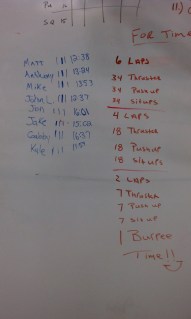 SQ 15
11.)
FOR TIME
Matt ||| 12:38
Anthony ||| 13:24
Mike ||| 13:53
John L ||| 12:37
Jon ||| 16:01
Jake |||
Gabby ||| 16:37
Kyle ||| 11:59
6 LAPS
34 Thruster
34 Push up
34 Sit ups
4 LAPS
18 Thruster
18 Push up
18 Sit ups
2 LAPS
7 Thruster
7 Push up
7 Sit up
1 Burpee
Time!!